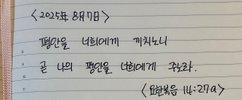 <2025年 8月 7日>
평안을 너희에게 끼치노니
곧 나의 평안을 너희에게 주노라.
<요한복음 14:27a>